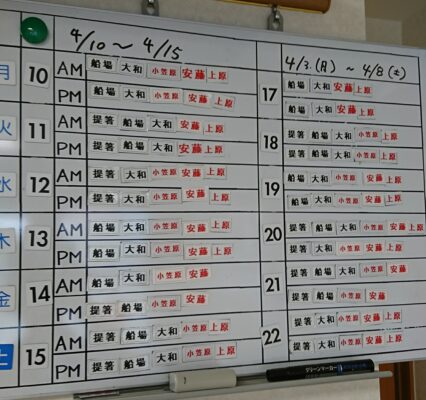 4/10 ～ 4/15
4/3.(月) ～ 4/8(土)
月 10 AM 船場 大和 小笠原 安藤 上原
PM 船場 大和 小笠原 安藤 上原
火 11 AM 提箸 船場 大和 安藤 上原
PM 提箸 船場 大和 安藤 上原
水 12 AM 提箸 大和 小笠原 安藤 上原
PM 提箸 大和 小笠原 安藤 上原
木 13 AM 船場 大和 小笠原 安藤 上原
PM 船場 大和 小笠原 安藤 上原
金 14 AM 船場 大和 小笠原 安藤
PM 提箸 船場 小笠原 安藤
土 15 AM 提箸 船場 大和 小笠原 上原
PM 提箸 船場 大和 小笠原 上原
17 船場 大和 安藤 上原
船場 大和 安藤 上原
18 提箸 船場 大和 小笠原 上原
提箸 船場 大和 小笠原 上原
19 船場 大和 小笠原 安藤 上原
船場 大和 小笠原 安藤 上原
20 提箸 船場 大和 小笠原 安藤 上原
提箸 船場 大和 小笠原 安藤 上原
21 船場 大和 小笠原 安藤 上原
提箸 船場 小笠原 安藤
22 提箸 大和 小笠原 安藤 上原
提箸 大和 小笠原 安藤 上原